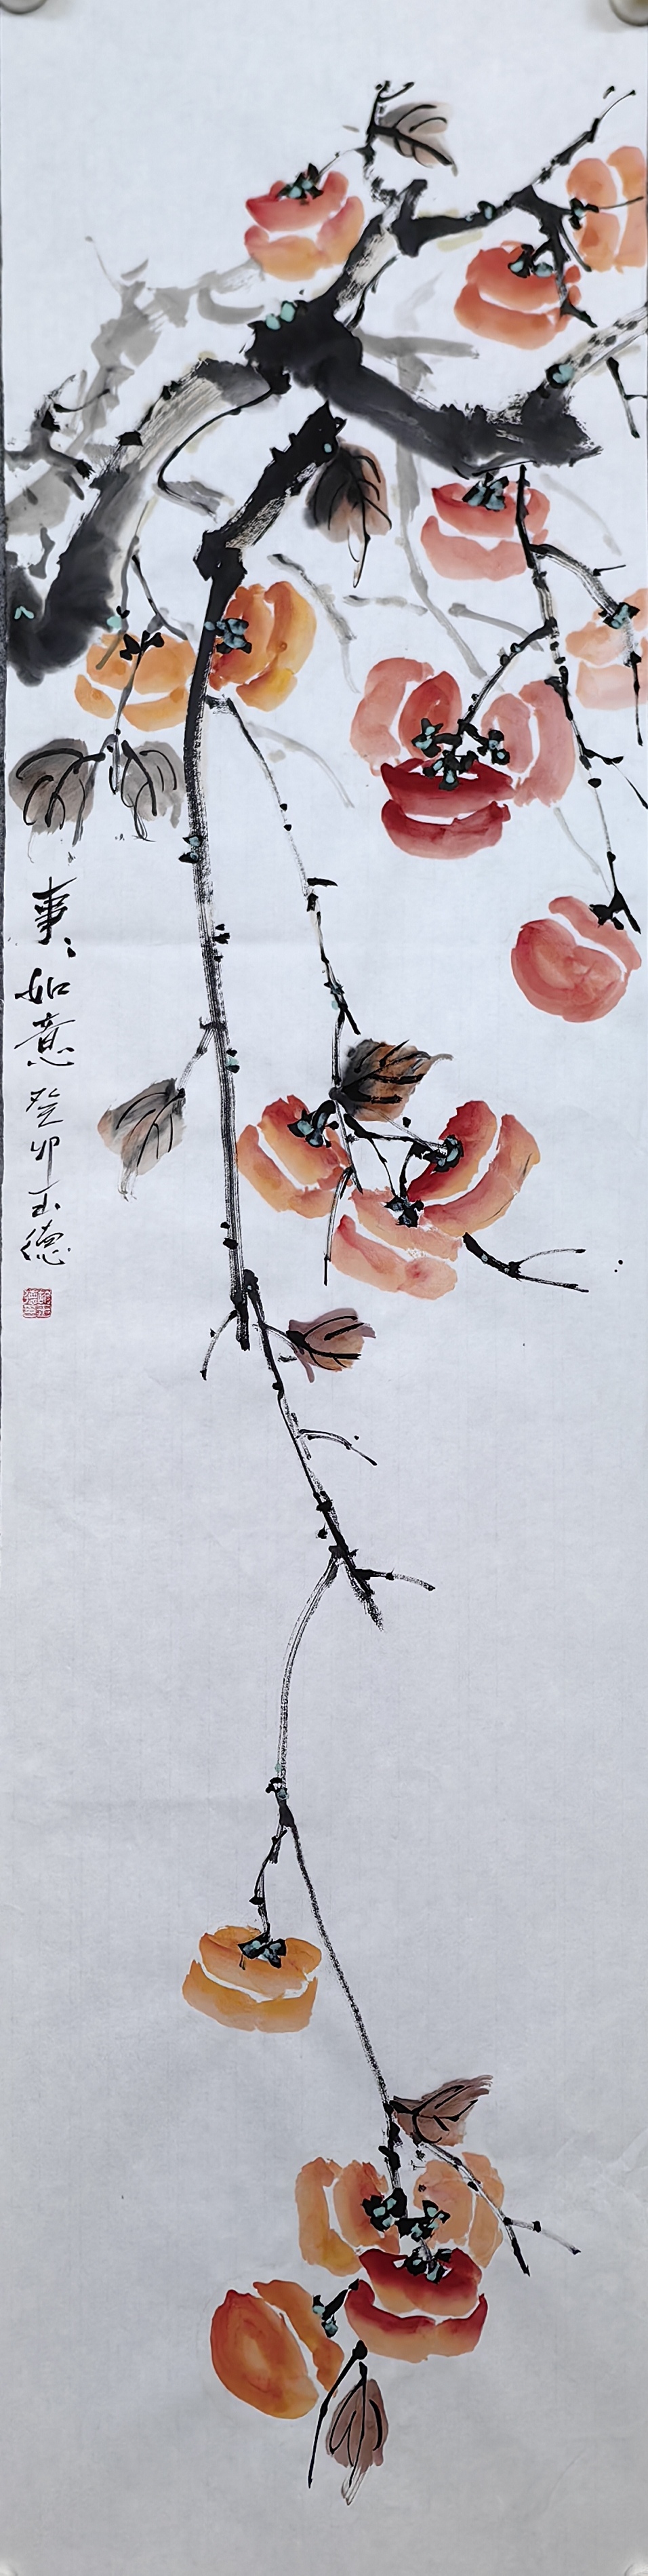 事〻如意 癸卯 玉德